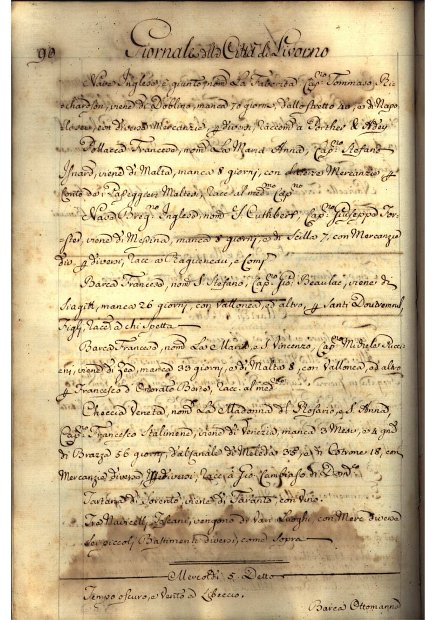 90 Giornale della Città di Livorno
Nave Inglese, e quinto nom. La Cap.no Tommaso Ri=
chardson, viene di Dublino, manca 70 giorni, dallo stretto 40, e di Napo
li con diverse Mercanzie, p diversi, Raccom. a Porther &
Pollacca Francese, nom. La Maria Anna, Cap.no Stefano
Isnard, viene di Malta, manca 8 giorni, con diverse Mercanzie, p
Conto de Passeggieri Maltesi, Racc. al med.mo Cap.no
Nave Inglese, nom. S. Cuthbert, Cap.no Giuseppe For=
ster, viene di Messina, manca 8 giorni, e di Scilla 7, con Mercanzie
p diversi, Racc. a Ragueneau, e Comp.
Barca Francese, nom. S. Stefano, Cap.no Gio. Beaulac, viene di
manca 26 giorni, con Vallonea, ed altro, p Santi
Figli, Racc. a chi Spetta
Barca Francese, nom. La Maria e S. Vincenzo, Cap.no Michele Ricc
viene di Zea, manca 33 giorni, e di Malta 8, con Vallonea, ed altro
p Francesco d' Onorato Boro, Racc. al med.mo
Checcia Veneta, nom. La Madonna del Rosario, e S. Anna,
Cap.no Francesco Stalimene, viene di Venezia, manca 3 Mesi, e 4 gni
di Brazza 56 giorni, dal Canale di Meleda 35, e di Cotrone 18, con
Mercanzie diverse p diversi, Racc. a Gio. di
Tartana di Sorento, viene di Taranto, con vino
Tre Navicelli, Toscani, vengono di varj Luoghi, con Merc. diverse
Sei piccol. Bastimenti diversi, come Sopra
Mercoldì 5 Detto
Tempo oscuro, e vento a Libeccio.
Barca Ottomanna